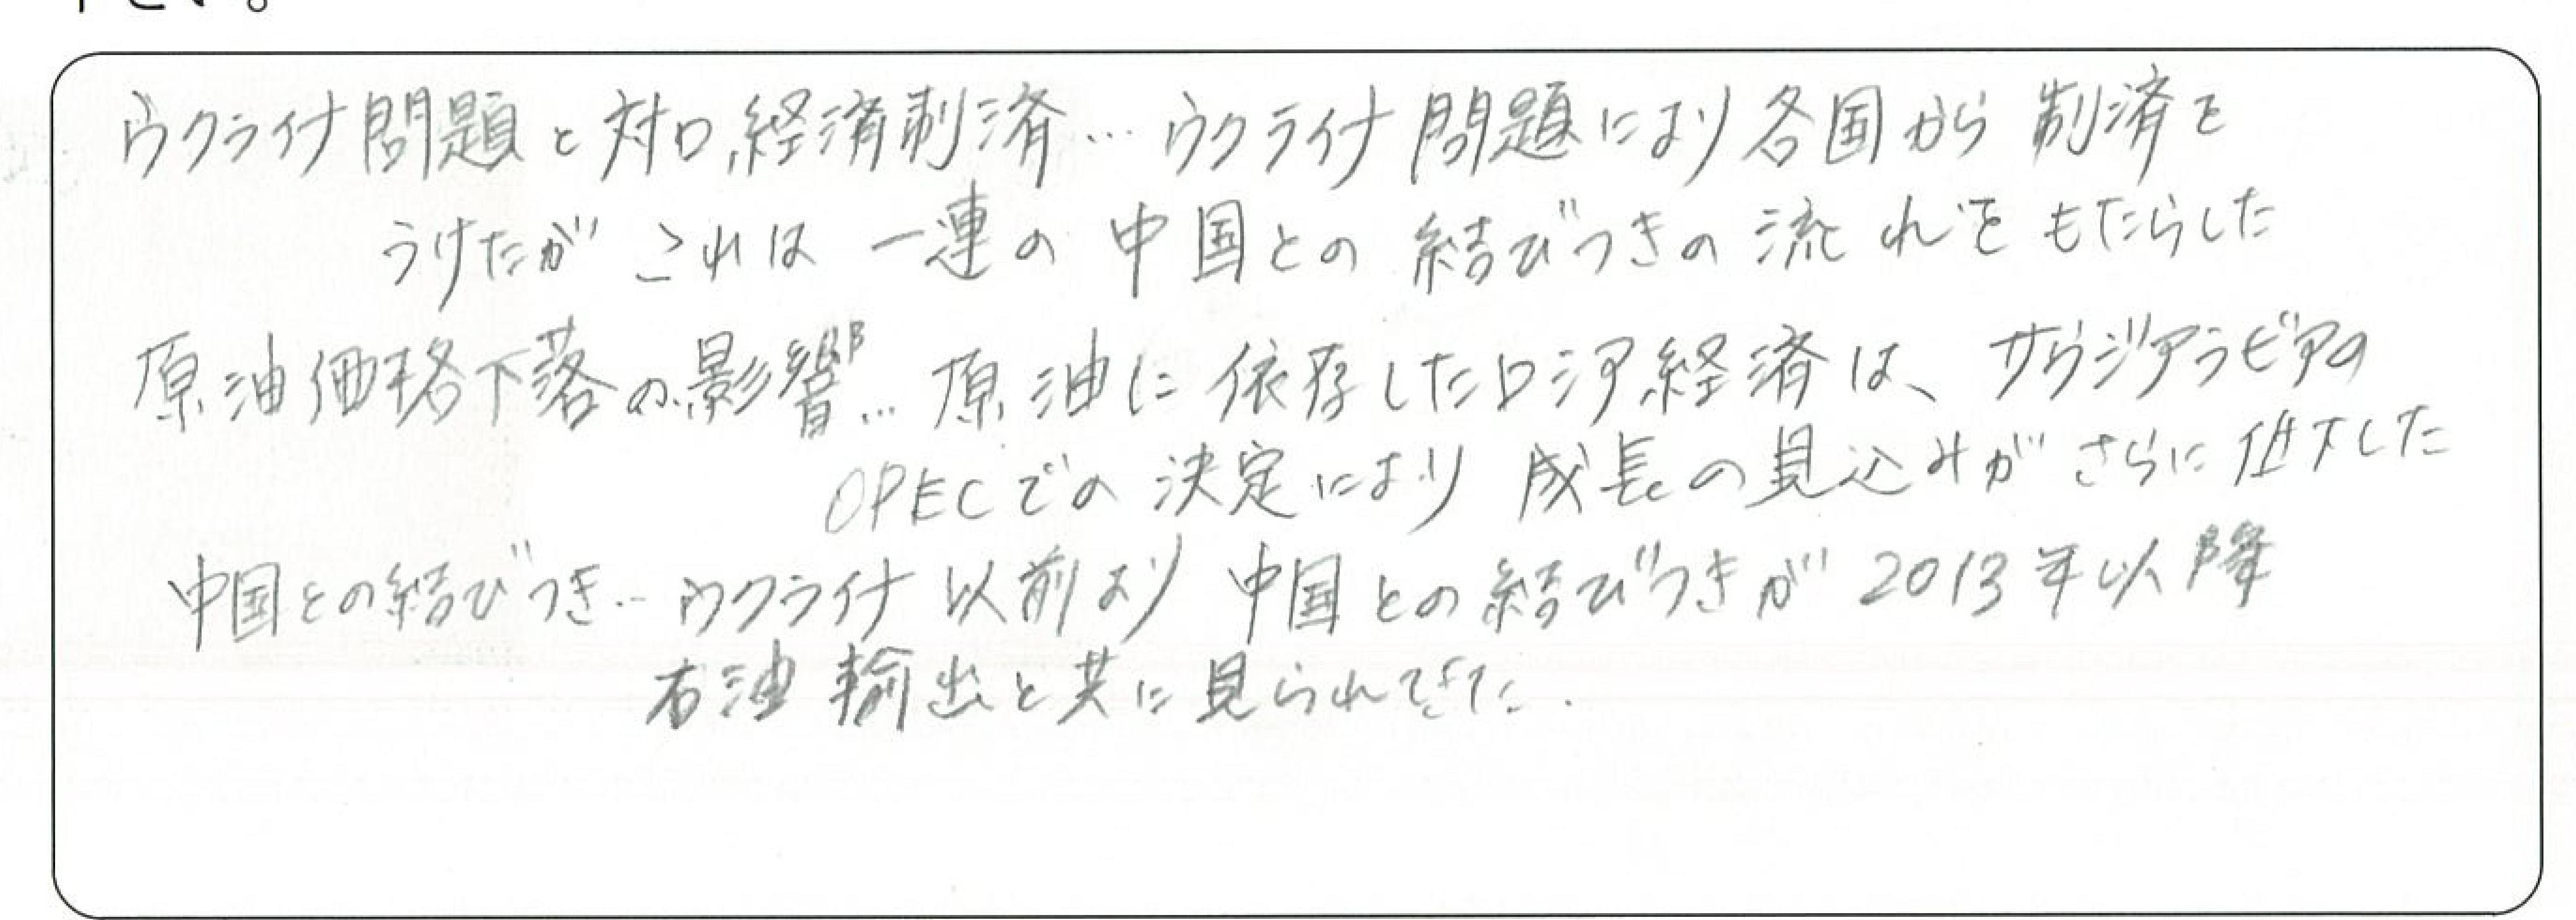 下さい。
ウクライナ問題と対ロ経済制済…ウクライナ問題により各国から制済を
うけたがこれは一連の中国との結びつきの流れをもたらした
原油価格下落の影響…原油に依存したロシア経済は、サウジアラビアの
OPECでの決定により成長の見込みがさらに低下した
中国との結びつき…ウクライナ以前より中国との結びつきが2013年以降
石油輸出と共に見られてきた.